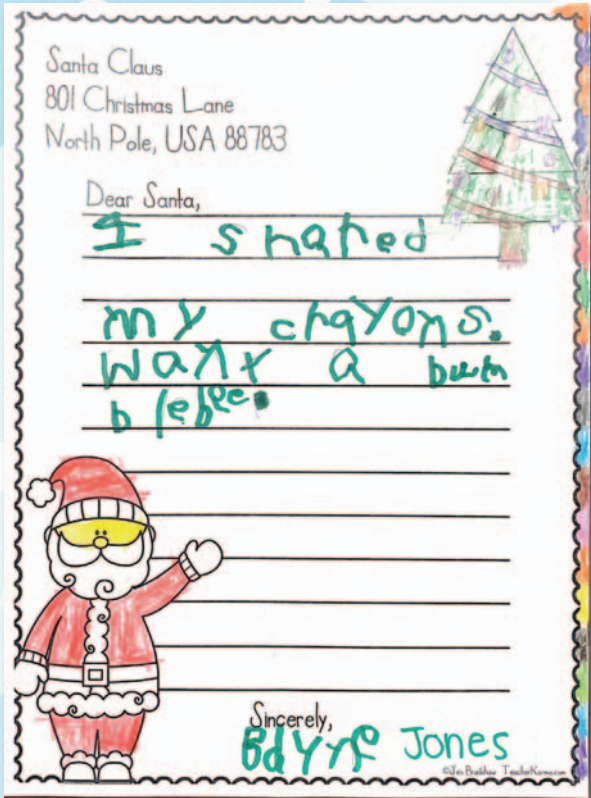 Santa Claus
801 Christmas Lane
North Pole, USA 88783
Dear Santa,
I shared
my crayons.
want a
Sincerely,
Jones
©Jen Bradshaw TeacherKarma.com